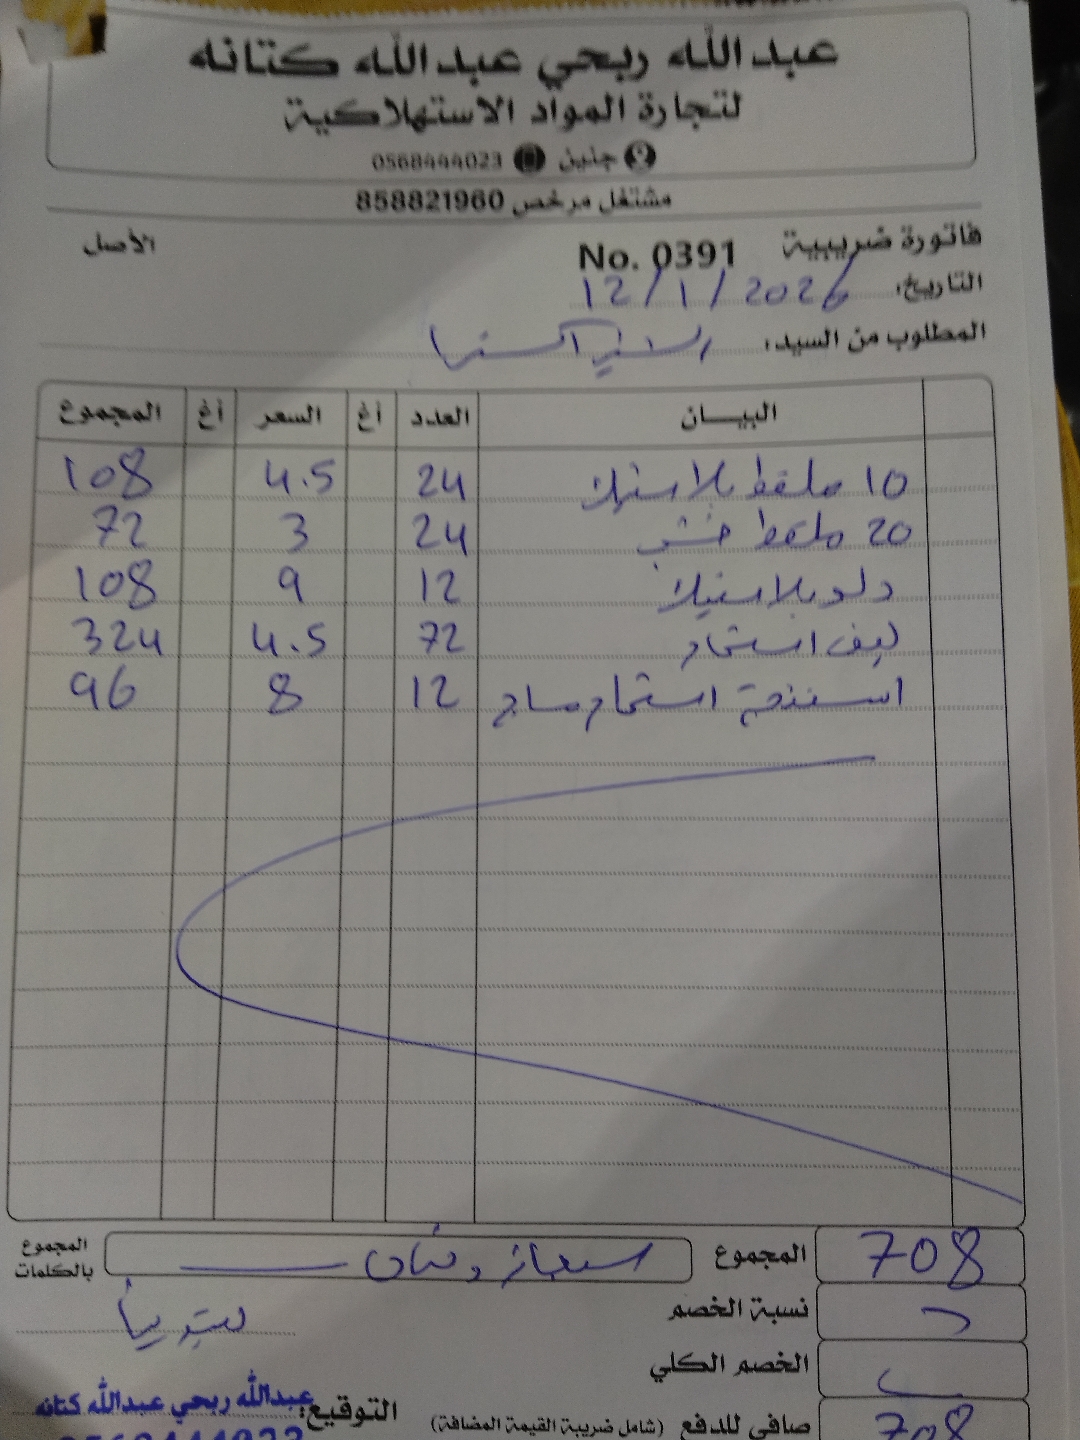 عبدالله ربحي عبدالله كتانه
لتجارة المواد الاستهلاكية
جنين 0568444023
مشتغل مرخص 858821960
فاتورة ضريبية No. 0391 الأصل
التاريخ: 12/1/2026
المطلوب من السيد:
البيـــان العدد أغ السعر أغ المجموع
10 ملقط بلاستيك 24 4.5 108
20 ملقط خشب 24 3 72
دلو بلاستيك 12 9 108
ليف استحمام 72 4.5 324
اسفنجة استحمام مساج 12 8 96
708 المجموع المجموع بالكلمات
نسبة الخصم
الخصم الكلي
صافي للدفع (شامل ضريبة القيمة المضافة) 708
التوقيع: عبدالله ربحي عبدالله كتانه
0568444023